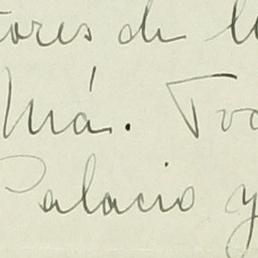 tores de l
Muá. Tod
Palacio y